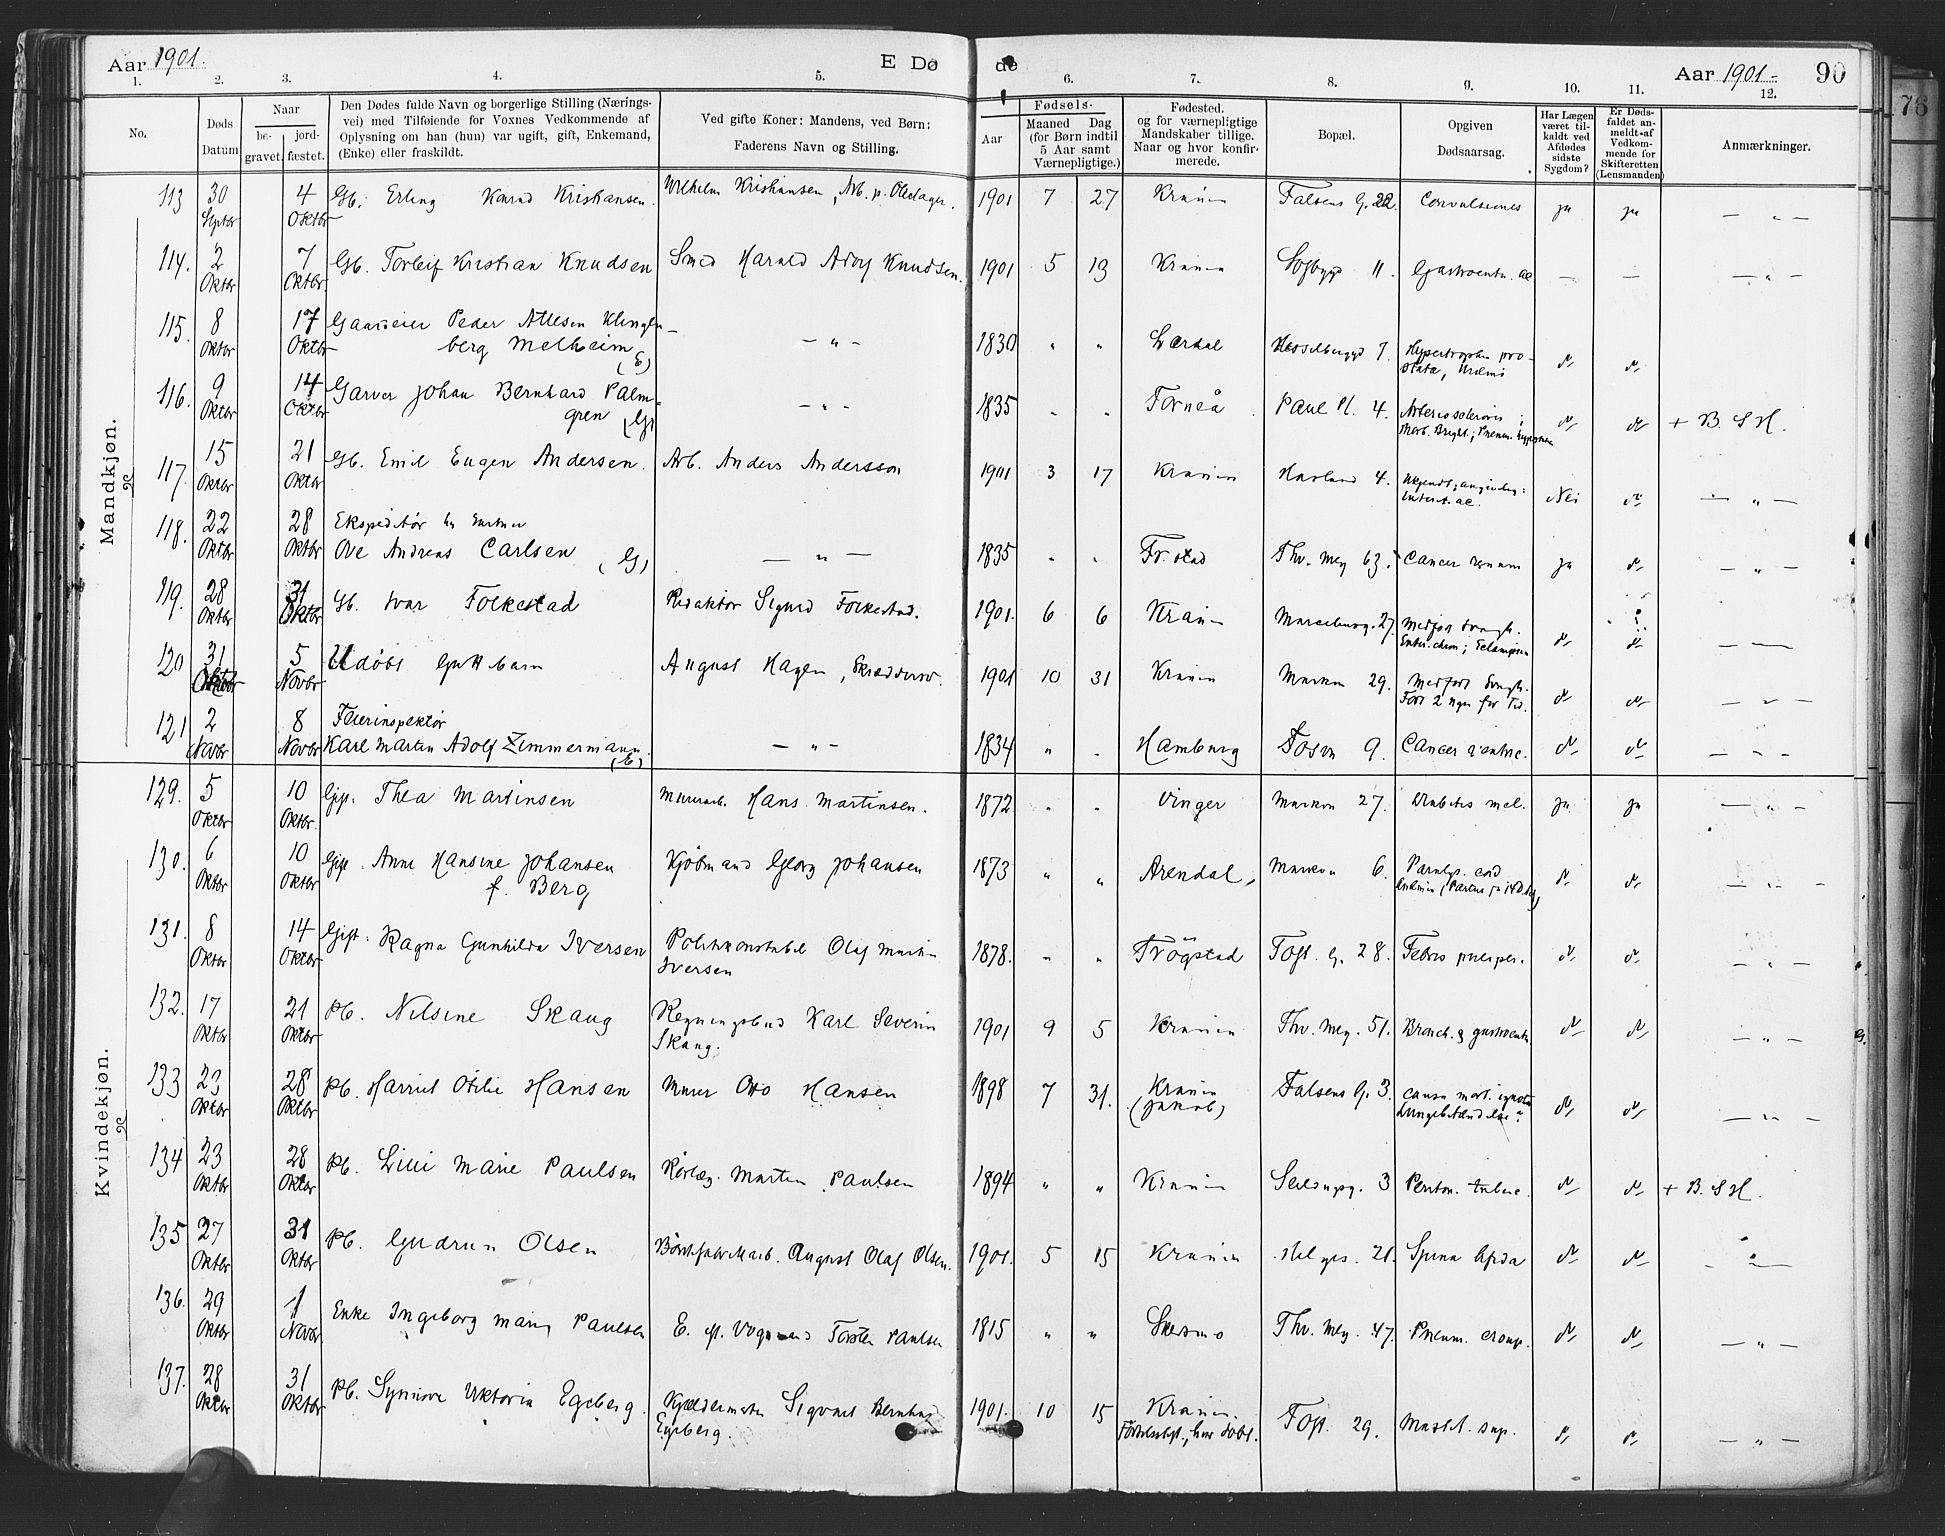 Aar 1901.
E Døde
Aar 1901.
90
76
1. 2. 3. 4. 5. 6. 7. 8. 9. 10. 11. 12.
No.
Døds Datum
Naar
be-gravet.
jord-fæstet.
Den Dødes fulde Navn og borgerlige Stilling (Nærings-
vei) med Tilføiende for Voxnes Vedkommende af
Oplysning om han (hun) var ugift, gift, Enkemand,
(Enke) eller fraskildt.
Ved gifte Koner: Mandens, ved Børn:
Faderens Navn og Stilling.
Fødsels-
Aar
Maaned Dag
(for Børn indtil
5 Aar samt
Værnepligtige.)
Fødested.
og for værnepligtige
Mandskaber tillige.
Naar og hvor konfir-
merede.
Bopæl.
Opgiven
Dødsaarsag.
Har Lægen
været til-
kaldt ved
Afdødes
sidste
Sygdom?
Er Døds-
faldet an-
meldt af
Vedkom-
mende for
Skifteretten
(Lensmanden)
Anmærkninger.
Mandkjøn.
113 30 Septbr 4 Oktbr Gb. Erling Konrad Kristiansen. Wilhelm Kristiansen, Arb. p. Oljelager. 1901 7 27 Krania Falsens G. 22. Convulsiones ja ja — „ —
114. 2 Oktbr 7 Oktbr Gb. Torleif Kristian Knudsen Smed Harald Adolf Knudsen. 1901 5 13 Krania Sofbggd 11. Gastroent. ac — — — „ —
115. 8 Oktbr 17 Oktbr Gaardeier Peder Atlesen Klingen-
berg Melheim (E) — „ — 1830 „ „ Lærdal Hesselbergsgd 7. Hypertrophia pro-
stata, Uræmi d. d.
116. 9 Oktbr 14 Oktbr Garver Johan Bernhard Palm-
gren (G) — „ — 1835 „ „ Torneå Paul Pl. 4. Arteriosclerosis;
Morb. Bright.; Pneum. d. d. + B. S H.
117. 15 Oktbr 21 Oktbr Gb. Emil Eugen Andersen. Arb. Anders Andersson 1901 3 17 Krania Havland 4. Enterit. ac. Nei d. — „ —
118. 22 Oktbr 28 Oktbr Ekspeditør
Ove Andreas Carlsen (G) — „ — 1835 „ „ Fr.stad Thv. Mey 63. Cancer renum ja d. — „ —
119. 28 Oktbr 31 Oktbr Gb. Ivar Folkestad Redaktør Sigurd Folkestad. 1901. 6 6 Krania Marselisg. 27. Medfør Svagh.
Enter. chron; Eclampsia d. d. — —
120 31 Oktbr 5 Novbr Udøbt Guttebarn August Hagen, Skrædderm. 1901 10 31 Krania Markvn 29. Medfødt Svagh.
Født 2 for Tid. d. d. — „ —
121 2 Novbr 8 Novbr Feierinspektør
Karl Martin Adolf Zimmermann. — „ — 1834 „ „ Hamburg Fosvn 9. Cancer ventric. d. d. — „ —
Kvindekjøn.
129. 5 Oktbr 10 Oktbr. Gift. Thea Martinsen Murerarb. Hans Martinsen. 1872 „ „ Vinger Markvn 27. Diabetes mel. ja ja — „ —
130. 6 Oktbr 10 Oktbr Gift. Anna Hansine Johansen
f. Berg Kjøbmand Georg Johansen 1873 „ „ Arendal, Markvn 6. Paralys. cord d. d. — „ —
131. 8 Oktbr 14 Oktbr Gift. Ragna Gunhilda Iversen Politikonstabel Olaf Martin
Iversen 1878. „ „ Trögstad Toft. G. 28. Febris puerper. d. d. — „ —
132. 17 Oktbr 21 Oktbr Pb. Nilsine Skaug Regningsbud Karl Severin
Skaug. 1901 9 5 Krania Thv. Mey. 51. Bronch. & gastroent. d. d. — „ —
133 23 Oktbr 28 Oktbr Pb. Harriet Otilie Hansen Murer Otto Hansen 1898 7 31. Krania
(Jakob) Falsens G. 3. causa mort. ignota
Lungebetændelse? d. d. — „ —
134 23 Oktbr 28 Oktbr Pb. Lilli Marie Paulsen Rørlæg. Martin Paulsen 1894 „ „ Krania Seilduksg. 3 Periton. tuberc. d. d. + B. S H.
135 27 Oktbr 31 Oktbr Pb. Gudrun Olsen Børstefabrikarb. August Olaf Olsen. 1901. 5 15 Krania Helges. 21. Spina bifida d. d. — „ —
136. 29 Oktbr 1 Novbr Enke Ingeborg Marie Paulsen E. ef. Vognmand Torsten Paulsen 1815 „ „ Skedsmo Thv. Mey. 47. Pneum. croup. d. d. — „ —
137. 28 Oktbr 31 Oktbr Pb. Synnøve Viktoria Egeberg Kjældermester Sigvart Bernhard
Egeberg. 1901. 10 15 Krania.
Fødselsst., hvor døbt. Toft. 29. Mastit. sup. d. d. — „ —